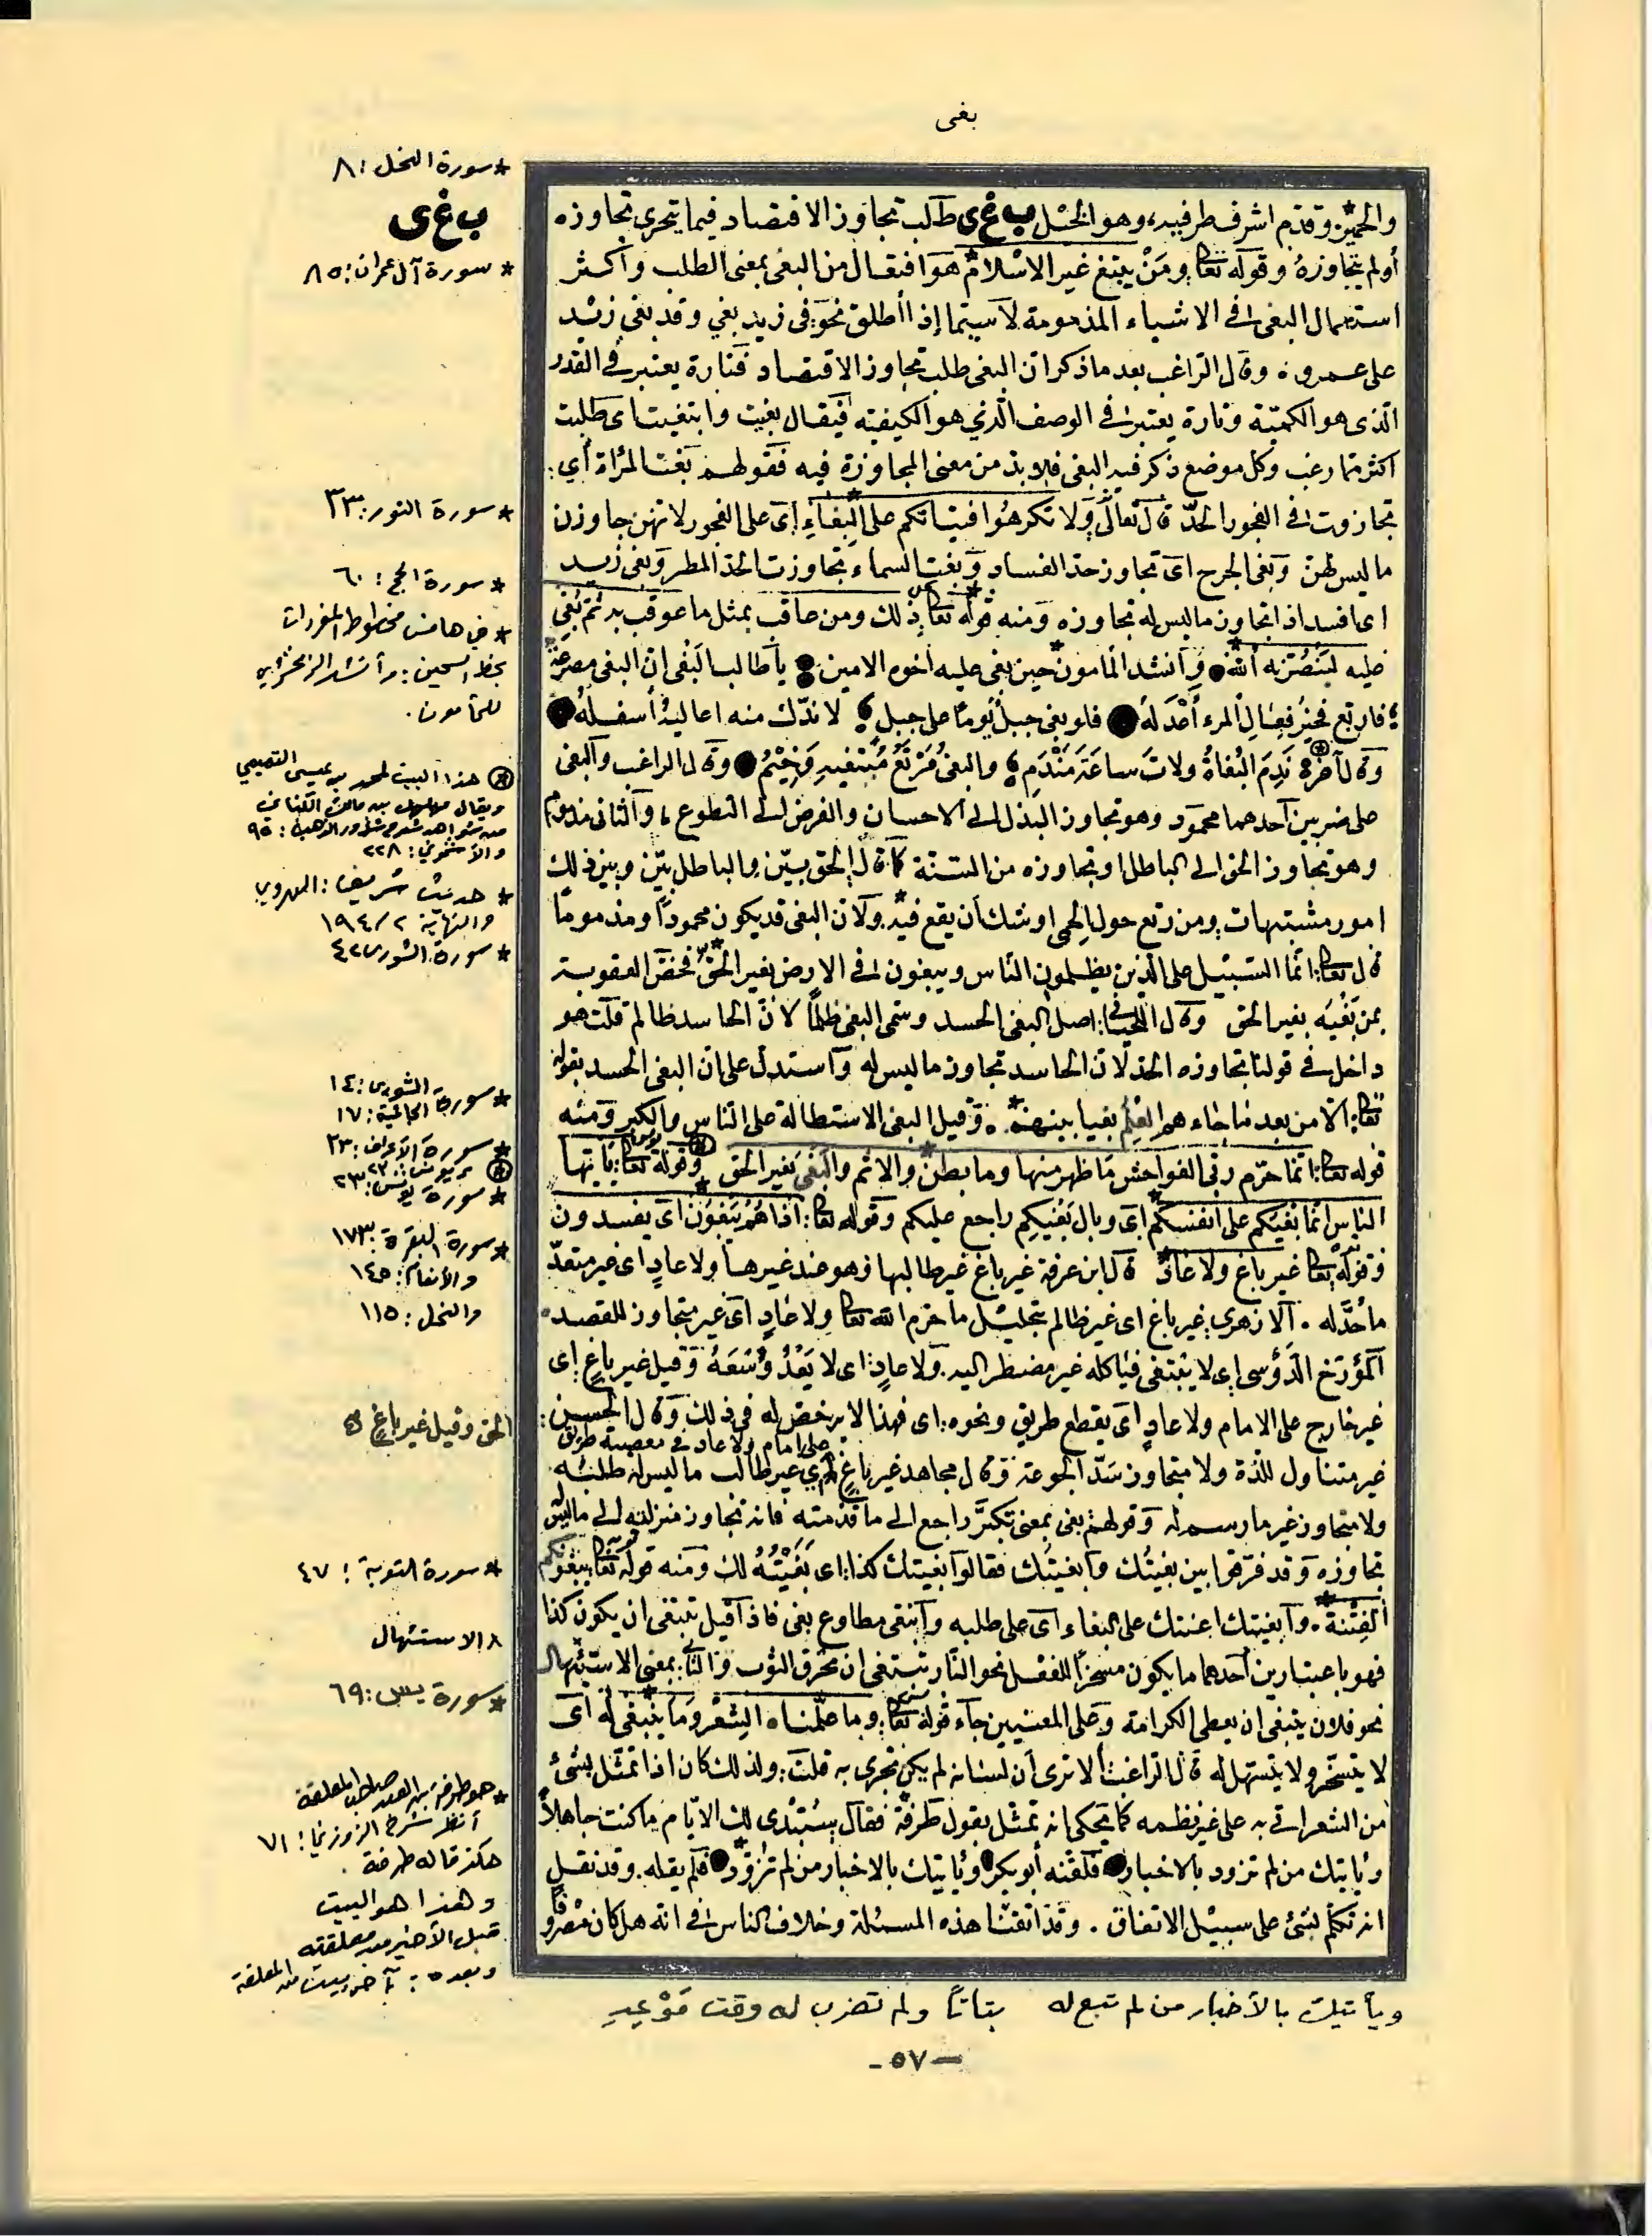 بغى
والحمير وقدم اشرف طرفيه، وهو الخيل ب غ ى طلب تجاوز الاقتصاد فيما يتحرى تجاوزه
أولم يتجاوزه وقوله تعا ومَنْ يبتغ غير الاسْلام هو افتعال من البغى بمعنى الطلب وأكثر
استعمال البغى فى الاشياء المذمومة لا سيما إذا أطلق نحو فى زيد بغي وقد بغى زيد
على عمرو. وقال الراغب بعد ما ذكر ان البغى طلب تجاوز الاقتصاد فتارة يعتبر فى القدر
الذى هو الكمية وتارة يعتبر فى الوصف الذي هو الكيفيه فيقال بغيت وابتغيت اى طلبت
اكثر مما رغب وكل موضع ذكر فيه البغى فلا بد من معنى المجاوزة فيه فقولهم بغت المرأة أي:
تجاوزت فى الفجور الحد قال تعالى ولا تكرهُوا فتياتكم على البغاء اى على الفجور لانهن جاوزن
ما ليس لهن وبغى الجرح اى تجاوز حد الفساد وبغت السماء تجاوزت الحد المطر وبغى زيد
اى افسد اذا تجاوز ما ليس له تجاوزه ومنه قوله تعا ذلك ومن عاقب بمثل ما عوقب به ثم بُغي
عليه لينصُرنه الله وأنشد المامون حين بغى عليه أخوه الامين يا طالب البغى إن البغى مصرعة
فاربَع فخيرُ فِعالِ المرء أعْدَلهُ فلو بغى جبلٌ يومًا على جبل لاندك منه اعاليهُ أسفلهُ
وقال آخر نَدِمَ البُغاةُ ولاتَ ساعَةَ مَنْدَمِ والبغىُ مَرْتَعُ مُبْتغيهِ وَخِيْمُ وقال الراغب والبغى
على ضربين أحدهما محمود وهو تجاوز العدل الى الاحسان والفرض الى التطوع، والثانى مذموم
وهو تجاوز الحق الى الباطل او تجاوزه من السنة كما قال الحق بيّن والباطل بيّن وبين ذلك
امور مشتبهات ومن رتع حول الحمى اوشك أن يقع فيه ولان البغى قد يكون محمودًا ومذمومًا
قال تعا: انما السبيل على الذين يظلمون الناس ويبغون فى الارض بغير الحق فخص العقوبة
بمن بَغْيُه بغير الحق وقال اللحيانى: اصل البغى الحسد وسمى البغى ظلمًا لأن الحاسد ظالم قلت هو
داخل فى قولنا تجاوزه الحد لان الحاسد تجاوز ما ليس له واستدل على ان البغى الحسد بقوله
تعا: الا من بعد ما جاءهم العلم بغيا بينهم. وقيل البغى الاستطالة على الناس والكبر ومنه
قوله تعا: انما حرّم ربى الفواحش ما ظهر منها وما بطن والاثم والبغى بغير الحق وقوله تعا: يا ايها
الناس انما بغيكم على انفسكم اى وبال بَغْيكم راجع عليكم وقوله تعا: اذا هُمْ يبغون اى يفسدون
وقوله تعا غير باغ ولا عاد قال ابن عرفة غير باغ غير طالبها وهو عند غيرها ولا عادٍ اى غير متعد
ما حُدَّ له. الازهرى: غير باغ اى غير ظالم بتحليل ما حرم الله تعا ولا عادٍ اى غير متجاوز للقصد.
المؤرخ السدوسى اى لا يبتغى فيأكله غير مضطر اليه. ولا عادٍ: اى لا يَعْدُ وُسْعَهُ وقيل غير باغٍ: اى
غير خارج على الامام ولا عادٍ اى يقطع طريق ونحوه: اى فهذا لا يرخص له فى ذلك وقال الحسين:
على امام ولا عاد فى معصية طريق
غير متناول للذة ولا متجاوز سَدّ الجوعة وقال مجاهد غير باغٍ اي غير طالب ما ليس له طلبُه
ولا متجاوز غير ما رسم له وقولهم بغى بمعنى تكبَّر راجع الى ما قدمته فانه تجاوز منزلته الى ما ليس له
تجاوزه وقد فرقوا بين بغيتُك وأبغيتُك فقالوا بغيتك كذا: اى بَغَيْتُهُ لك ومنه قوله تعا يبغونكم
الفِتْنة. وأبغيتك اعنتك على البغاء اى على طلبه وابتغى مطاوع بغى فاذا قيل ينبغى ان يكون كذا
فهو باعتبارين أحدهما ما يكون مسخرًا للفعل نحو النار تنبغى ان تحرق الثوب والثانى: بمعنى الاستئهال
نحو فلان ينبغى ان يعطى الكرامة وعلى المعنيين جاء قوله تعا: وما علّمناه الشعْر وما ينبغى له اى
لا يتسخر ولا يتسهل له قال الراغب ألا ترى ان لسانه لم يكن يجرى به قلت: ولذلك كان اذا تمثل بشئ
من الشعر اتى به على غير نظمه كما يحكى انه تمثل بقول طرفة فقال ستبْدى لك الايام ما كنت جاهلاً
ويأتيك من لم تزود بالاخبار فلقنه أبو بكر ويأتيك بالاخبار من لم تُزوّد فلم يقله. وقد نقل
انه تكلم بشئ على سبيل الاتفاق. وقد اتقنا هذه المسئلة وخلاف الناس فى انه هل كان مصروفًا
* سورة النحل: ٨
ب غ ى
* سورة آل عمران: ٨٥
* سورة النور: ٣٣
* سورة الحج: ٦٠
* في هامش مخطوط المفردات
بخط السمين: وأنشد الزمخشري
للمأمون.
* هذا البيت لمحمد بن عيسى التميمي
ويقال مهلهل بن مالك الكناني
من شواهد شرح شذور الذهب: ٩٥
والأشموني: ٢٢٨
* حديث شريف: الهروي
والنهاية ٢/١٩٤
* سورة الشورى ٤٢
* سورة الشورى: ١٤
الجاثية: ١٧
* سورة الأعراف: ٣٣
* سورة يونس: ٢٣
* سورة يونس: ٢٣
* سورة البقرة: ١٧٣
والأنعام: ١٤٥
والنحل: ١١٥
الحق وقيل غير باغٍ
* سورة التوبة: ٤٧
٨ الاستئهال
* سورة يس: ٦٩
* هو طرفة بن العبد صاحب المعلقة
أنظر شرح الزوزني: ٧١
هكذا قاله طرفة.
وهذا هو البيت
قبل الأخير من معلقته
وبعده: آخر بيت من المعلقة
ويأتيك بالأخبار من لم تبع له بتاتاً ولم تضرب له وقت مَوْعدِ
-٥٧-